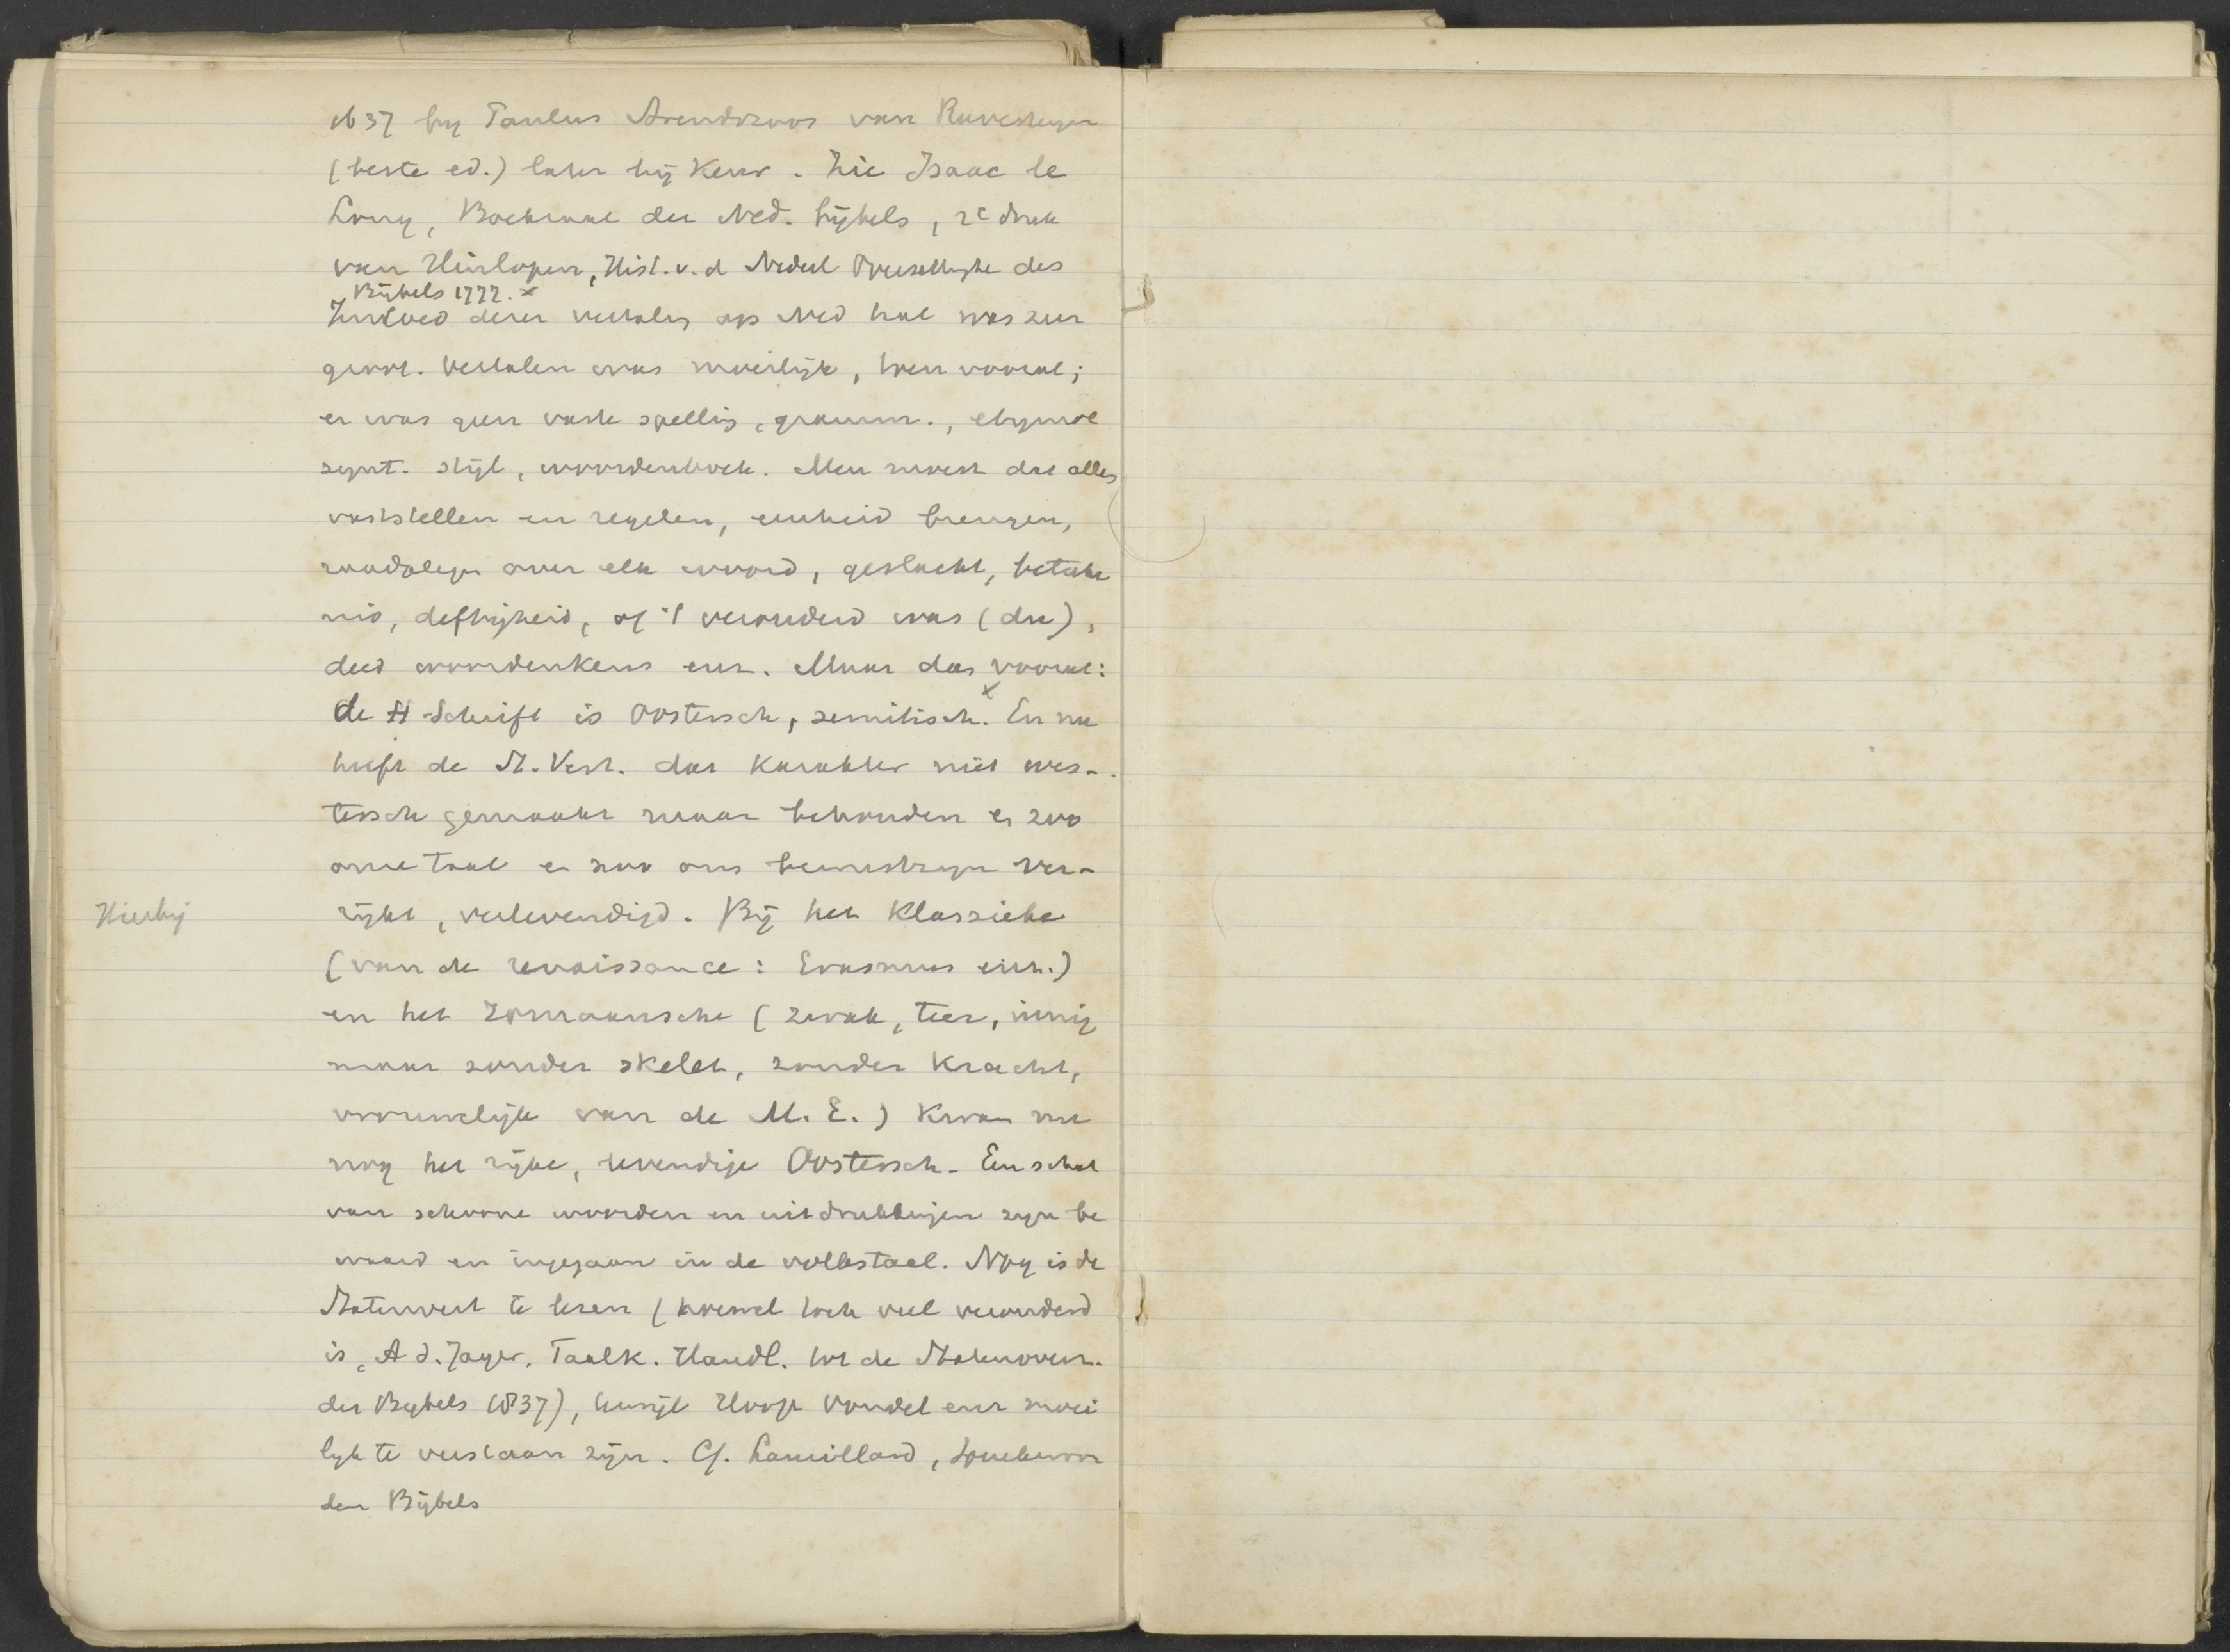 1637 by Paulus Arendszoos van Ravesteyn
(beste ed.) later bij Keur. Zie Isaac le
Long, Boekzaal der Ned. bijbels, 2e druk
van Hinlopen, Hist. v. d Nederl Overzettinge des
Bijbels 1777. x
Invloed dezer vertaling op Ned taal was zeer
groot. Vertalen was moeilijk, toen vooral;
er was geen vaste spelling, gramm., etymol
synt. stijl, woordenboek. Men moest dat alles
vaststellen en regelen, eenheid brengen,
raadplegen over elk woord, geslacht, beteke
nis, deftigheid, of 't verouderd was (du),
deed woordenkeus enz. Maar dan vooral:
x
de H Schrift is Oostersch, semitisch. En nu
heeft de St. Vert. dat karakter niet wes-
tersch gemaakt maar behouden en zoo
onze taal en zoo ons bewustzijn ver-
Hierbij
rijkt, verlevendigd. Bij het Klassieke
(van de renaissance: Erasmus enz.)
en het romaansche (zwak, teer, innig
maar zonder skelet, zonder kracht,
vrouwelijk van de M. E.) kwam nu
nog het rijke, levendige Oostersch. Een schat
van schoone woorden en uitdrukkingen zijn be
waard en ingegaan in de volkstaal. Nog is de
Statenvert te lezen (hoewel toch veel verouderd
is, A d. Jager, Taalk. Handl. tot de Statenoverz.
des Bybels 1837), terwijl Hooft Vondel enz moei
lyk te verstaan zijn. Cf. Laurillard,
den Bijbels